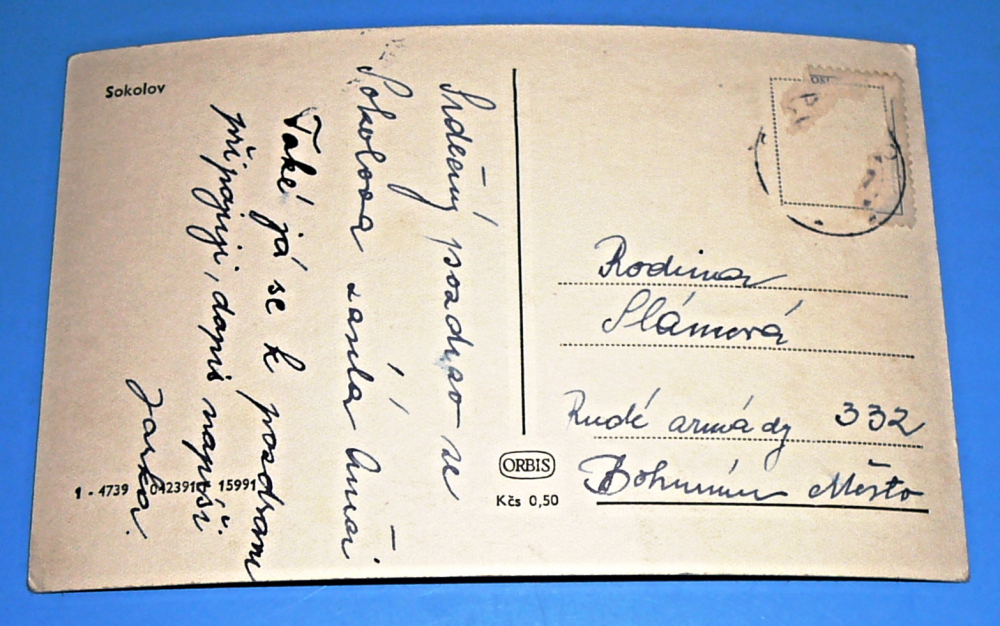 Sokolov
Srdečný pozdrav ze
Sokolova zasílá
Také já se k pozdravu
připojuji, dopis napíši.
Jarka.
1 - 4739 15991
ORBIS
Kčs 0,50
Rodina
Slámová
Rudé armády 332
Bohumín Město